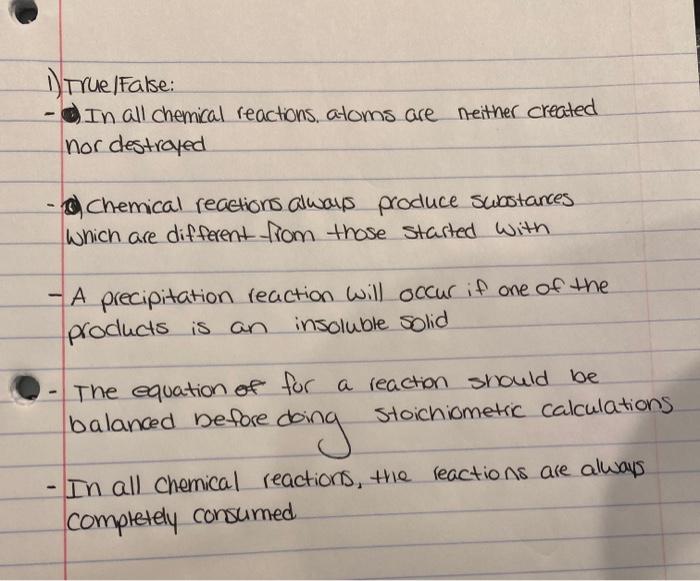 1) True/False:
- In all chemical reactions, atoms are neither created
nor destroyed
- Chemical reactions always produce substances
which are different from those started with
- A precipitation reaction will occur if one of the
products is an insoluble solid
- The equation of for a reaction should be
balanced before doing stoichiometric calculations
- In all chemical reactions, the reactions are always
completely consumed